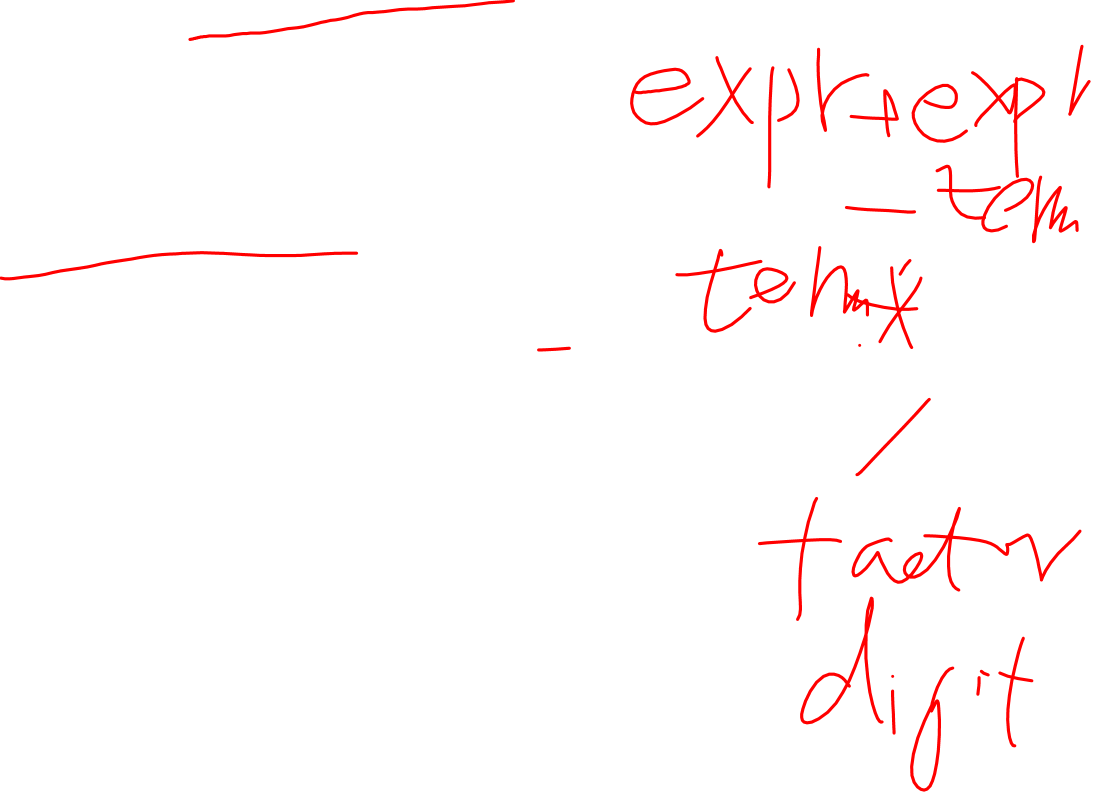 expr + expr
- term
term *
/
factor
digit